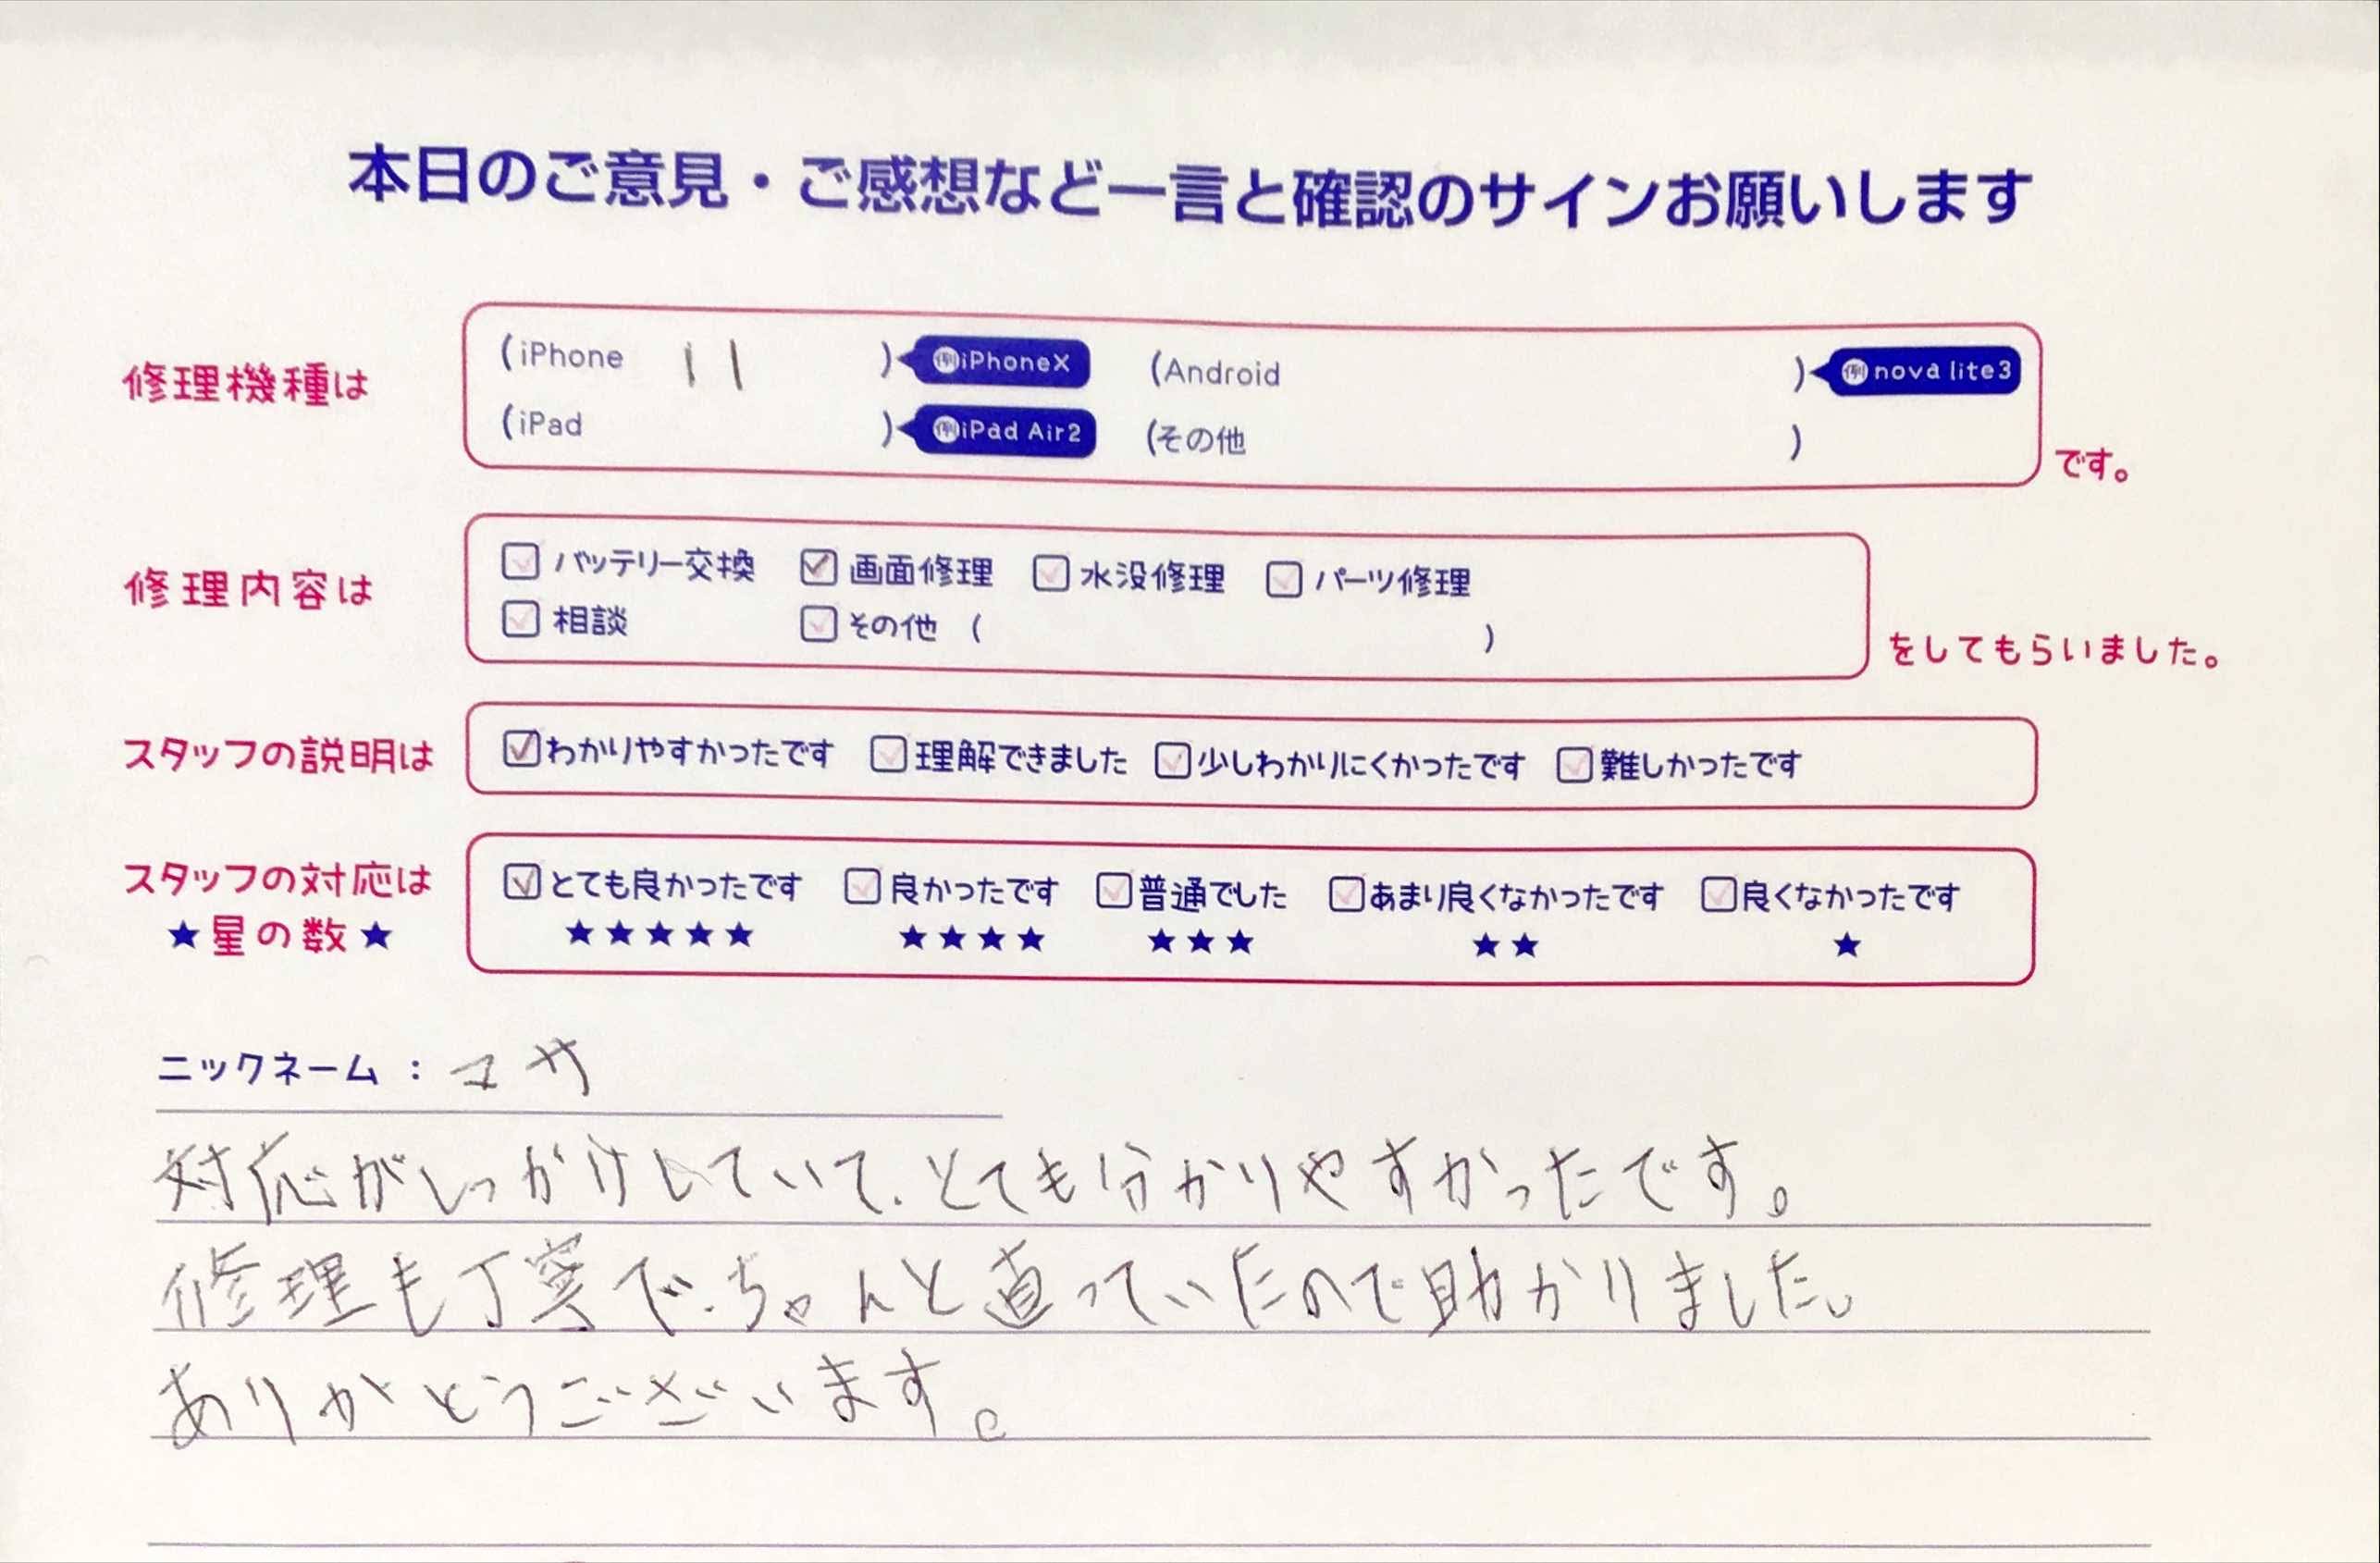 本日のご意見・ご感想など一言と確認のサインお願いします
修理機種は
(iPhone 11 ) 例iPhoneX (Android ) 例nova lite3
(iPad ) 例iPad Air2 (その他 )
です。
修理内容は
バッテリー交換 画面修理 水没修理 パーツ修理
相談 その他 ( )
をしてもらいました。
スタッフの説明は
わかりやすかったです 理解できました 少しわかりにくかったです 難しかったです
スタッフの対応は
★星の数★
とても良かったです 良かったです 普通でした あまり良くなかったです 良くなかったです
★★★★★ ★★★★ ★★★ ★★ ★
ニックネーム : マサ
対応がしっかりしていて、とても分かりやすかったです。
修理も丁寧で、ちゃんと直っていたので助かりました。
ありがとうございます。